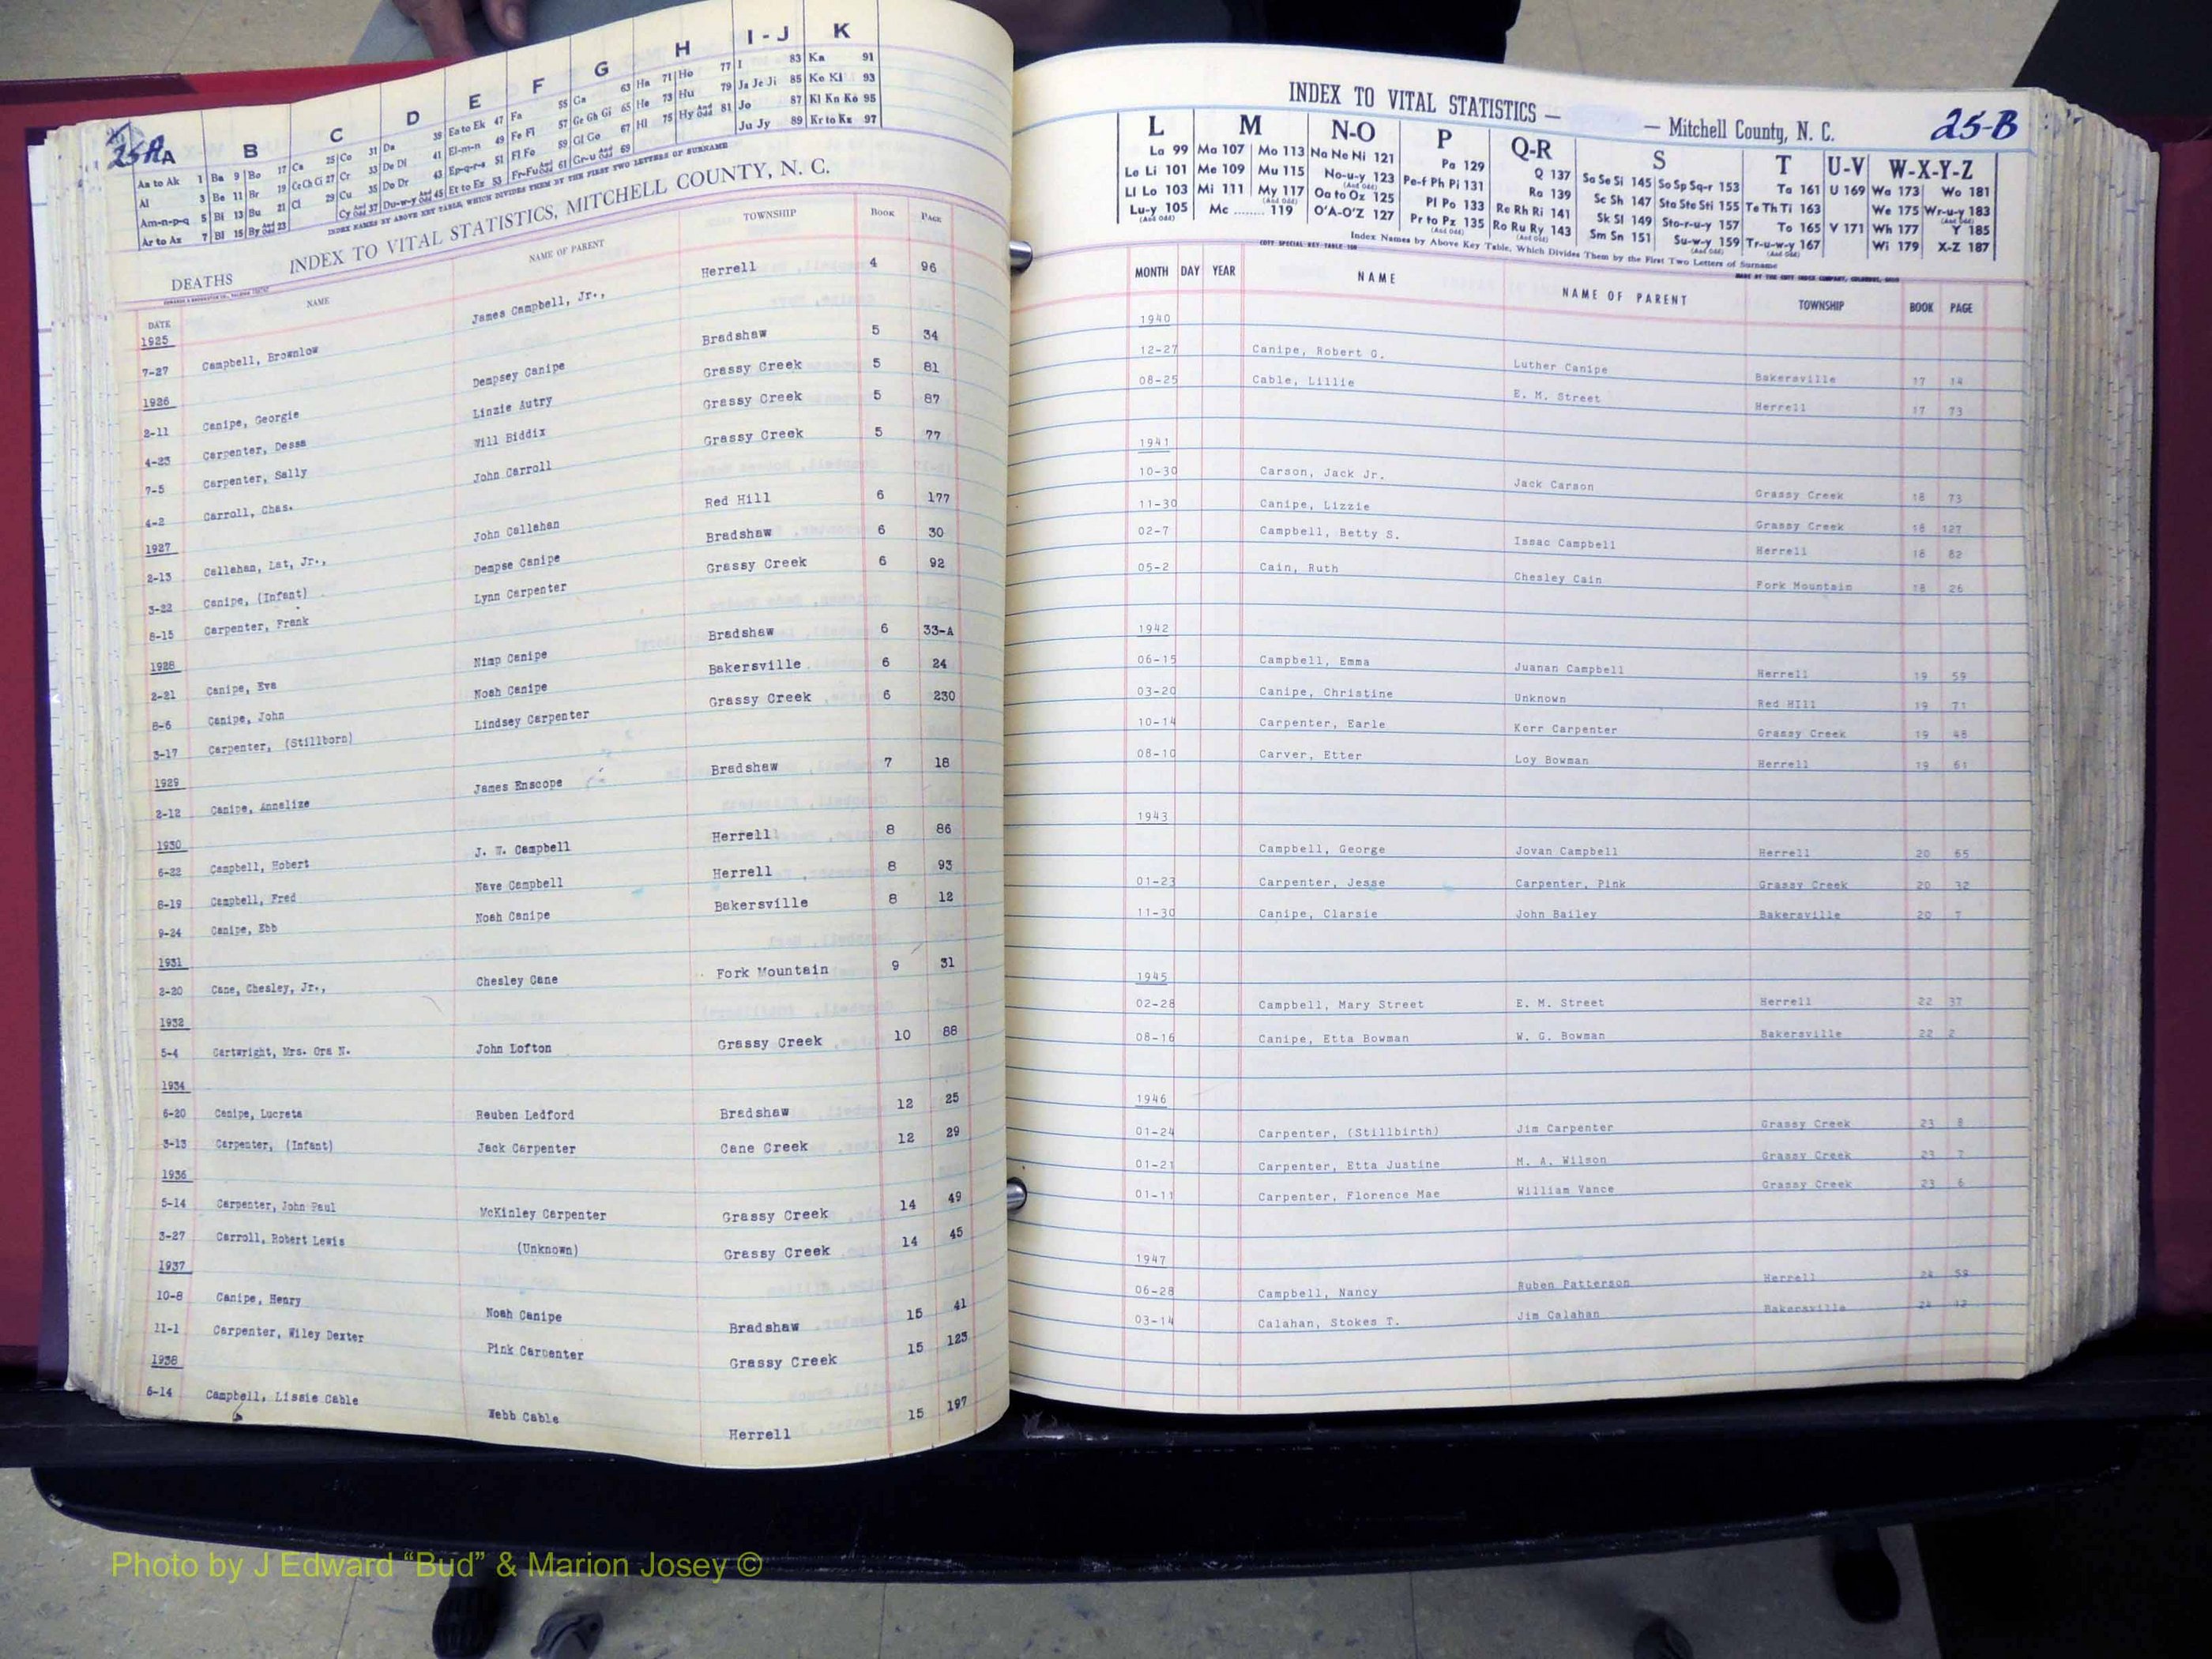 25-A
A B C D E F G H I-J K
Aa to Ak 1 Ba 9 Bo 17 Ca 25 Co 31 Da 39 Ea to Ek 47 Fa 55 Ga 63 Ha 71 Ho 77 I 83 Ka 91
Al 3 Be 11 Br 19 Ce Ch Ci 27 Cr 33 De Di 41 El-m-n 49 Fe Fi 57 Ge Gh Gi 65 He 73 Hu 79 Ja Je Ji 85 Ke Ki 93
Am-n-p-q 5 Bi 13 Bu 21 Cl 29 Cu 35 Do Dr 43 Ep-q-r-s 51 Fl Fo 59 Gl Go 67 Hi 75 Hy And Odd 81 Jo 87 Kl Kn Ko 95
Ar to Az 7 Bl 15 By And Odd 23 Cy And Odd 37 Du-w-y And Odd 45 Et to Ez 53 Fr-Fu And Odd 61 Gr-u And Odd 69 Ju Jy 89 Kr to Kz 97
INDEX NAMES BY ABOVE KEY TABLE, WHICH DIVIDES THEM BY THE FIRST TWO LETTERS OF SURNAME
DEATHS INDEX TO VITAL STATISTICS, MITCHELL COUNTY, N. C.
DATE NAME NAME OF PARENT TOWNSHIP BOOK PAGE
1925
7-27 Campbell, Brownlow James Campbell, Jr., Herrell 4 96
1926
2-11 Canipe, Georgie Dempsey Canipe Bradshaw 5 34
4-23 Carpenter, Dessa Linzie Autry Grassy Creek 5 81
7-5 Carpenter, Sally Will Biddix Grassy Creek 5 87
4-2 Carroll, Chas. John Carroll Grassy Creek 5 77
1927
2-13 Callahan, Lat, Jr., John Callahan Red Hill 6 177
3-22 Canipe, (Infant) Dempse Canipe Bradshaw 6 30
8-15 Carpenter, Frank Lynn Carpenter Grassy Creek 6 92
1928
2-21 Canipe, Eva Nimp Canipe Bradshaw 6 33-A
8-6 Canipe, John Noah Canipe Bakersville 6 24
3-17 Carpenter, (Stillborn) Lindsey Carpenter Grassy Creek 6 230
1929
2-12 Canipe, Annelize James Enscope Bradshaw 7 18
1930
6-22 Campbell, Hobert J. W. Campbell Herrell 8 86
8-19 Campbell, Fred Nave Campbell Herrell 8 93
9-24 Canipe, Ebb Noah Canipe Bakersville 8 12
1931
2-20 Cane, Chesley, Jr., Chesley Cane Fork Mountain 9 31
1932
5-4 Cartwright, Mrs. Ora N. John Lofton Grassy Creek 10 88
1934
6-20 Canipe, Lucreta Reuben Ledford Bradshaw 12 25
3-13 Carpenter, (Infant) Jack Carpenter Cane Creek 12 29
1936
5-14 Carpenter, John Paul McKinley Carpenter Grassy Creek 14 49
3-27 Carroll, Robert Lewis (Unknown) Grassy Creek 14 45
1937
10-8 Canipe, Henry Noah Canipe Bradshaw 15 41
11-1 Carpenter, Wiley Dexter Pink Carpenter Grassy Creek 15 123
1938
6-14 Campbell, Lissie Cable Webb Cable Herrell 15 197
INDEX TO VITAL STATISTICS — — Mitchell County, N. C. 25-B
L M N-O P Q-R S T U-V W-X-Y-Z
La 99 Ma 107 Mo 113 Na Ne Ni 121 Pa 129 Q 137 Sa Se Si 145 So Sp Sq-r 153 Ta 161 U 169 Wa 173 Wo 181
Le Li 101 Me 109 Mu 115 No-u-y 123 (And Odd) Pe-f Ph Pi 131 Ra 139 Sc Sh 147 Sta Ste Sti 155 Te Th Ti 163 We 175 Wr-u-y 183 (And Odd)
Ll Lo 103 Mi 111 My 117 (And Odd) Oa to Oz 125 Pl Po 133 Re Rh Ri 141 Sk Sl 149 Sto-r-u-y 157 To 165 V 171 Wh 177 Y 185
Lu-y 105 (And Odd) Mc ........ 119 O'A-O'Z 127 Pr to Pz 135 (And Odd) Ro Ru Ry 143 (And Odd) Sm Sn 151 Su-w-y 159 (And Odd) Tr-u-w-y 167 (And Odd) Wi 179 X-Z 187
Index Names by Above Key Table, Which Divides Them by the First Two Letters of Surname
MONTH DAY YEAR NAME NAME OF PARENT TOWNSHIP BOOK PAGE
1940
12-27 Canipe, Robert G. Luther Canipe Bakersville 17 14
08-25 Cable, Lillie E. M. Street Herrell 17 73
1941
10-30 Carson, Jack Jr. Jack Carson Grassy Creek 18 73
11-30 Canipe, Lizzie Grassy Creek 18 127
02-7 Campbell, Betty S. Issac Campbell Herrell 18 82
05-2 Cain, Ruth Chesley Cain Fork Mountain 18 26
1942
06-15 Campbell, Emma Juanan Campbell Herrell 19 59
03-20 Canipe, Christine Unknown Red HIll 19 71
10-14 Carpenter, Earle Kerr Carpenter Grassy Creek 19 48
08-10 Carver, Etter Loy Bowman Herrell 19 61
1943
Campbell, George Jovan Campbell Herrell 20 65
01-23 Carpenter, Jesse Carpenter, Pink Grassy Creek 20 32
11-30 Canipe, Clarsie John Bailey Bakersville 20 7
1945
02-28 Campbell, Mary Street E. M. Street Herrell 22 37
08-16 Canipe, Etta Bowman W. G. Bowman Bakersville 22 2
1946
01-24 Carpenter, (Stillbirth) Jim Carpenter Grassy Creek 23 8
01-21 Carpenter, Etta Justine M. A. Wilson Grassy Creek 23 7
01-11 Carpenter, Florence Mae William Vance Grassy Creek 23 6
1947
06-28 Campbell, Nancy Ruben Patterson Herrell 24 58
03-14 Calahan, Stokes T. Jim Calahan Bakersville 24
Photo by J Edward “Bud” & Marion Josey ©